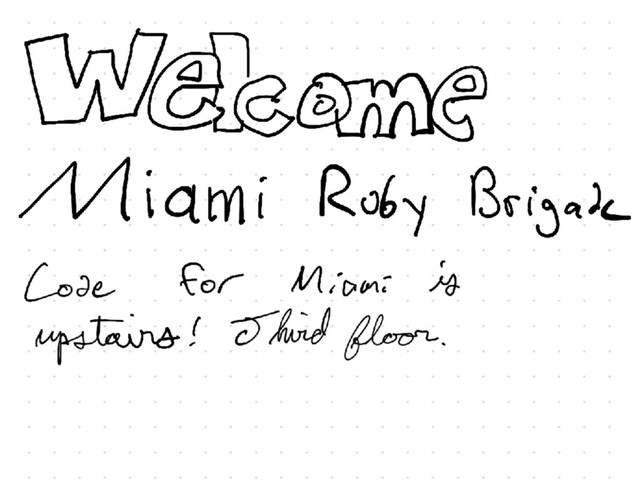 Welcome
Miami Ruby Brigade
Code for Miami is
upstairs! Third floor.